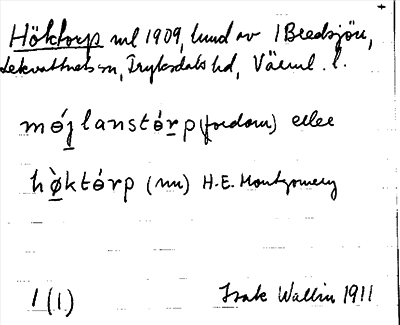 Höktorp ml 1909, lund av 1 Bredsjön,
Lekvattnets sn, Fryksdals hd, Värml. l.
mójlanstórp (fordom) eller
hø̀którp (nu) H.E. Montgomery
1 (1) Isak Wallin 1911